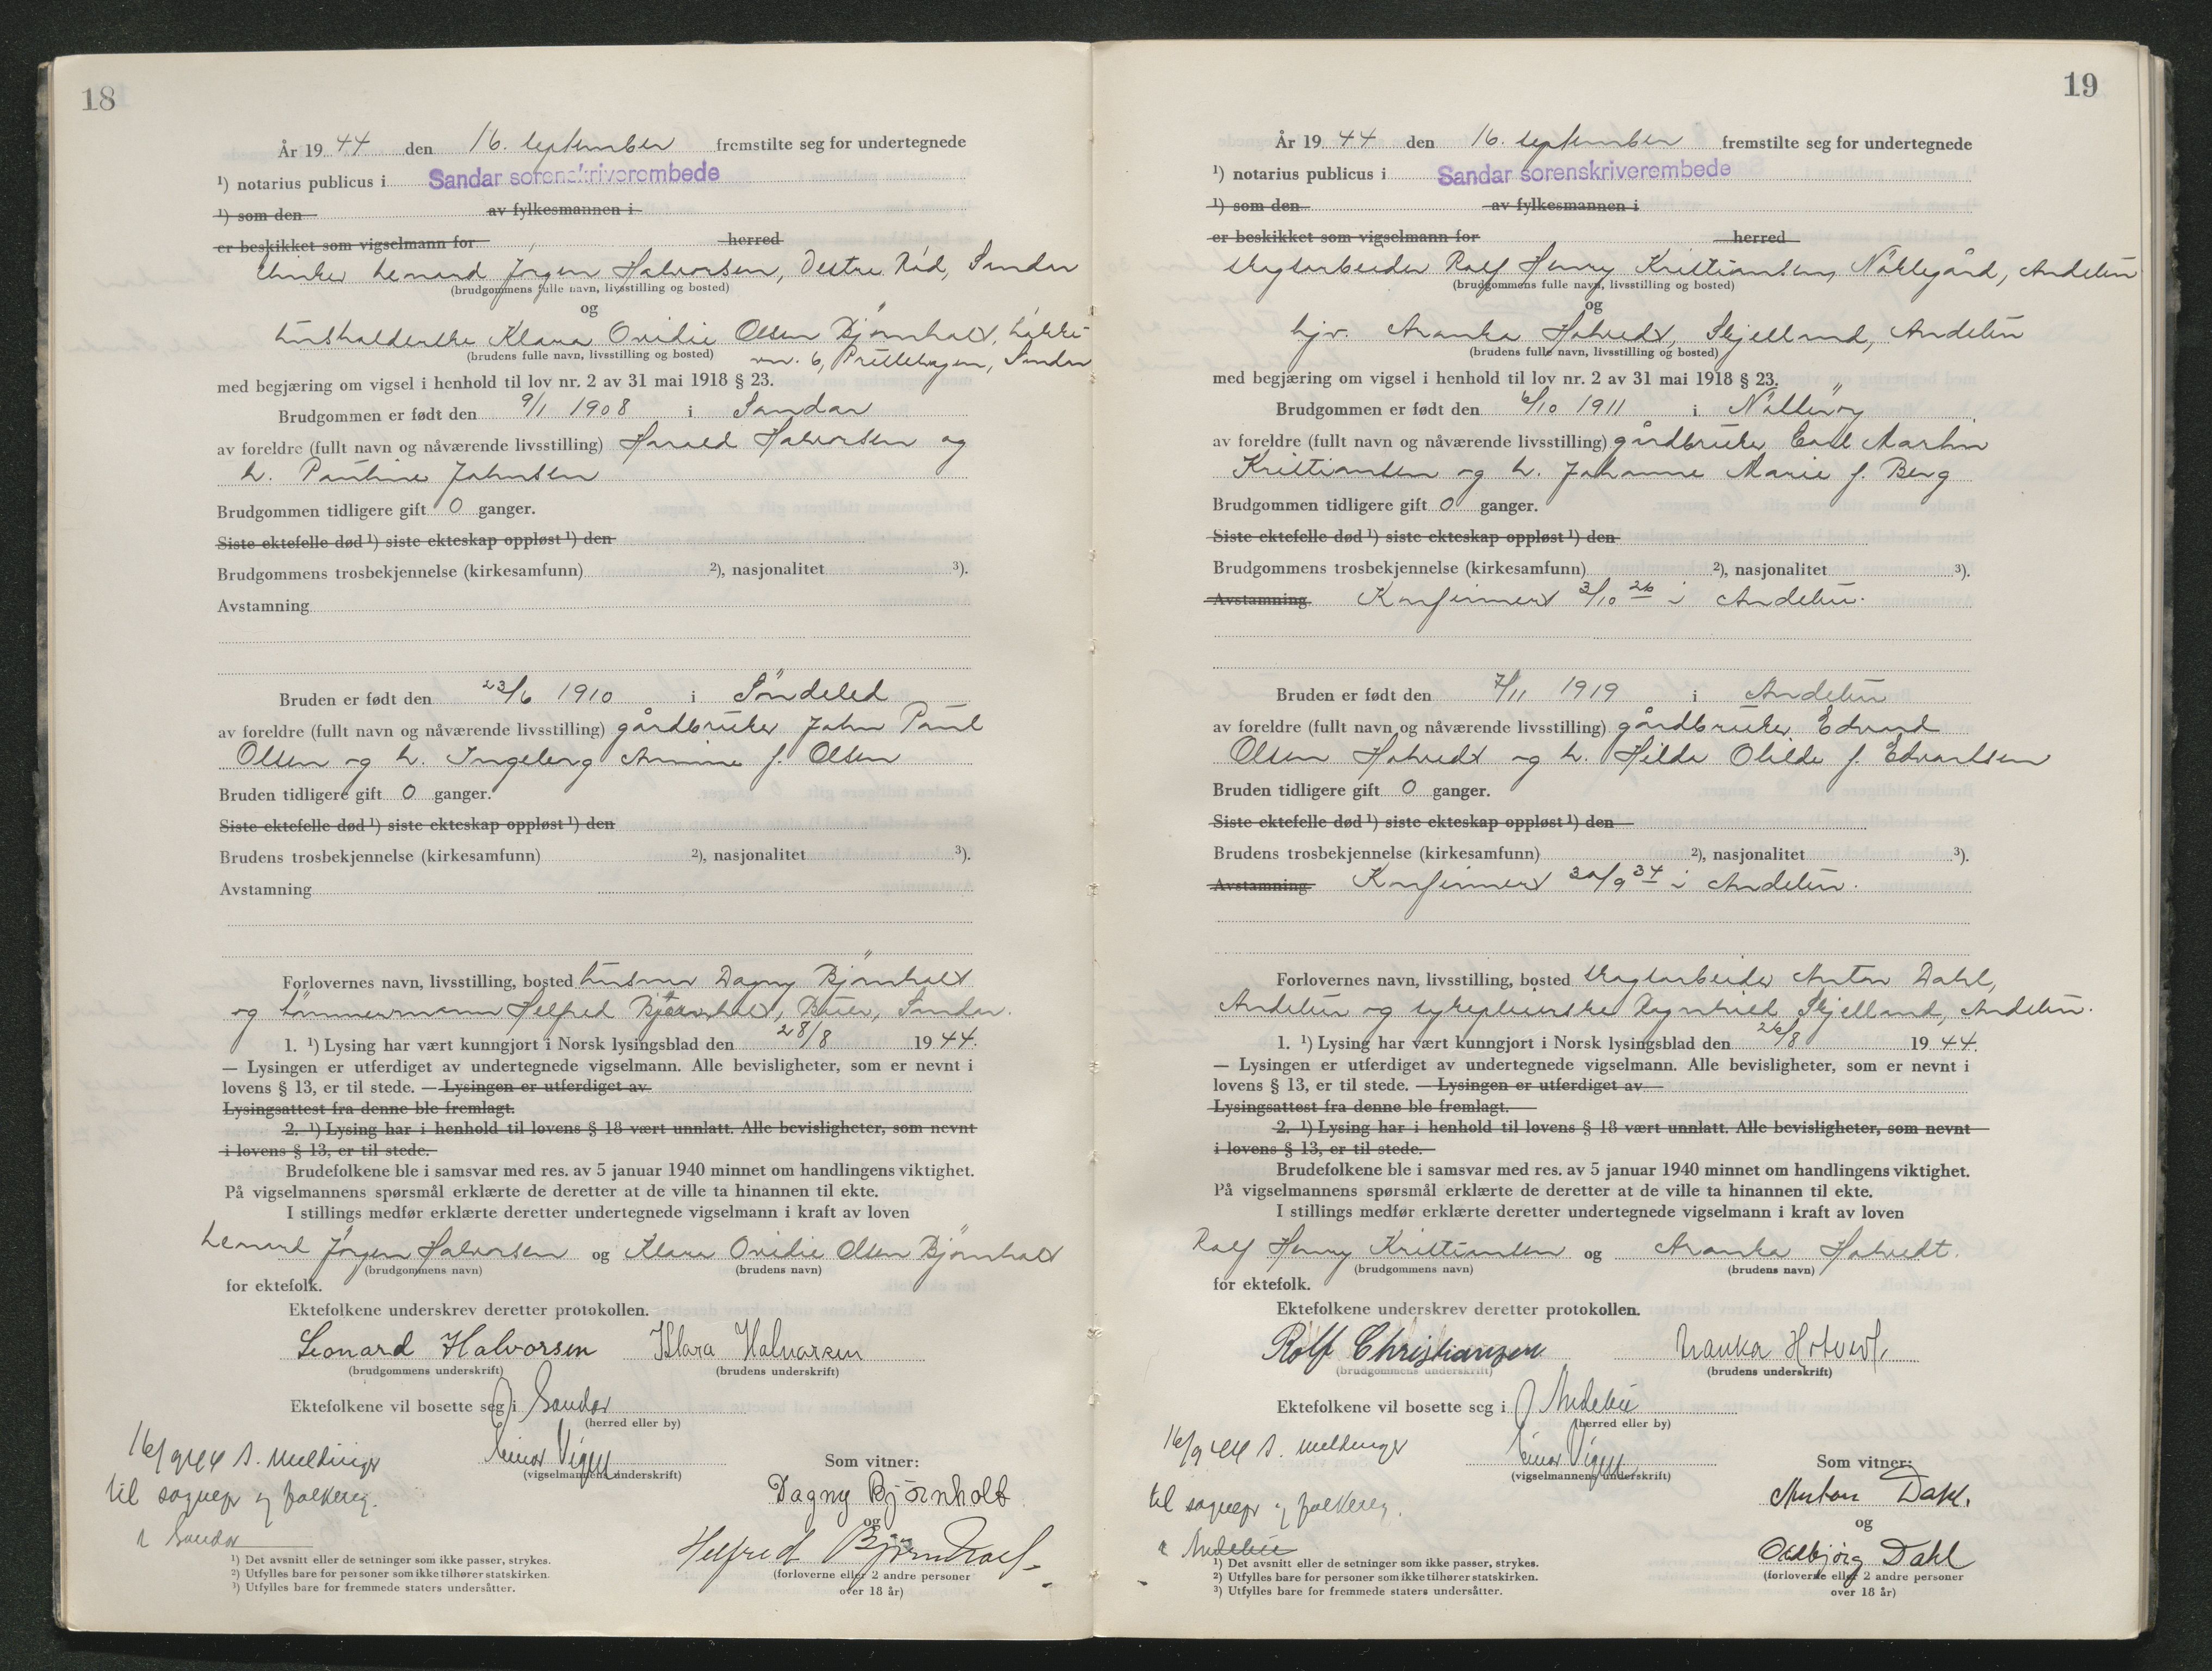 18
År 1944 den 16. september fremstilte seg for undertegnede
¹) notarius publicus i Sandar sorenskriverembede
¹) som den av fylkesmannen i
er beskikket som vigselmann for herred
Lenard Jørgen Halvorsen, Vestre Rød, Sandar
(brudgommens fulle navn, livsstilling og bosted)
og
husholderske Klara Ovidie Olsen Bjørnholt, Løkke-
(brudens fulle navn, livsstilling og bosted) vn. 6, Prestehagen, Sandar
med begjæring om vigsel i henhold til lov nr. 2 av 31 mai 1918 § 23.
Brudgommen er født den 9/1 1908 i Sandar
av foreldre (fullt navn og nåværende livsstilling) Harald Halvorsen og
h. Pauline Johnsen
Brudgommen tidligere gift 0 ganger.
Siste ektefelle død ¹) siste ekteskap oppløst ¹) den
Brudgommens trosbekjennelse (kirkesamfunn) ²), nasjonalitet ³).
Avstamning
Bruden er født den 23/6 1910 i Søndeled
av foreldre (fullt navn og nåværende livsstilling) gårdbruker John Paul
Olsen og h. Ingeborg Annine f. Olsen
Bruden tidligere gift 0 ganger.
Siste ektefelle død ¹) siste ekteskap oppløst ¹) den
Brudens trosbekjennelse (kirkesamfunn) ²), nasjonalitet ³).
Avstamning
Forlovernes navn, livsstilling, bosted husmor Dagny Bjørnholt
og tømmermann Helfred Bjørnholt, Sandar.
1. ¹) Lysing har vært kunngjort i Norsk lysingsblad den 28/8 1944.
— Lysingen er utferdiget av undertegnede vigselmann. Alle bevisligheter, som er nevnt i
lovens § 13, er til stede. — Lysingen er utferdiget av
Lysingsattest fra denne ble fremlagt.
2. ¹) Lysing har i henhold til lovens § 18 vært unnlatt. Alle bevisligheter, som nevnt
i lovens § 13, er til stede.
Brudefolkene ble i samsvar med res. av 5 januar 1940 minnet om handlingens viktighet.
På vigselmannens spørsmål erklærte de deretter at de ville ta hinannen til ekte.
I stillings medfør erklærte deretter undertegnede vigselmann i kraft av loven
Lenard Jørgen Halvorsen og Klara Ovidie Olsen Bjørnholt
(brudgommens navn) (brudens navn)
for ektefolk.
Ektefolkene underskrev deretter protokollen.
Leonard Halvorsen Klara Halvorsen
(brudgommens underskrift) (brudens underskrift)
Ektefolkene vil bosette seg i Sandar
(herred eller by)
16/9 44 s. meldinger Einar Vigen
(vigselmannens underskrift)
Som vitner:
til sognepr og folkereg. Dagny Bjørnholt
i Sandar og
Helfred Bjørnholt
(forloverne eller 2 andre personer
over 18 år)
¹) Det avsnitt eller de setninger som ikke passer, strykes.
²) Utfylles bare for personer som ikke tilhører statskirken.
³) Utfylles bare for fremmede staters undersåtter.
19
År 1944 den 16. september fremstilte seg for undertegnede
¹) notarius publicus i Sandar sorenskriverembede
¹) som den av fylkesmannen i
er beskikket som vigselmann for herred
skogsarbeider Rolf Henry Kristiansen, Nøklegård, Andebu
(brudgommens fulle navn, livsstilling og bosted)
og
hjv. Aranka Hotvedt, Skjelland, Andebu
(brudens fulle navn, livsstilling og bosted)
med begjæring om vigsel i henhold til lov nr. 2 av 31 mai 1918 § 23.
Brudgommen er født den 6/10 1911 i Nøtterøy
av foreldre (fullt navn og nåværende livsstilling) gårdbruker Carl Martin
Kristiansen og h. Johanne Marie f. Berg
Brudgommen tidligere gift 0 ganger.
Siste ektefelle død ¹) siste ekteskap oppløst ¹) den
Brudgommens trosbekjennelse (kirkesamfunn) ²), nasjonalitet ³).
Avstamning Konfirmert 3/10 26 i Andebu.
Bruden er født den 7/11 1919 i Andebu
av foreldre (fullt navn og nåværende livsstilling) gårdbruker Edvard
Olsen Hotvedt og h. Hilda Olilde f. Edvardsen
Bruden tidligere gift 0 ganger.
Siste ektefelle død ¹) siste ekteskap oppløst ¹) den
Brudens trosbekjennelse (kirkesamfunn) ²), nasjonalitet ³).
Avstamning Konfirmert 30/9 34 i Andebu.
Forlovernes navn, livsstilling, bosted skogsarbeider Anton Dahl,
Andebu og sykepleierske Skjelland, Andebu.
1. ¹) Lysing har vært kunngjort i Norsk lysingsblad den 26/8 1944.
— Lysingen er utferdiget av undertegnede vigselmann. Alle bevisligheter, som er nevnt i
lovens § 13, er til stede. — Lysingen er utferdiget av
Lysingsattest fra denne ble fremlagt.
2. ¹) Lysing har i henhold til lovens § 18 vært unnlatt. Alle bevisligheter, som nevnt
i lovens § 13, er til stede.
Brudefolkene ble i samsvar med res. av 5 januar 1940 minnet om handlingens viktighet.
På vigselmannens spørsmål erklærte de deretter at de ville ta hinannen til ekte.
I stillings medfør erklærte deretter undertegnede vigselmann i kraft av loven
Rolf Henry Kristiansen og Aranka Hotvedt.
(brudgommens navn) (brudens navn)
for ektefolk.
Ektefolkene underskrev deretter protokollen.
Rolf Christiansen Aranka Hotvedt.
(brudgommens underskrift) (brudens underskrift)
Ektefolkene vil bosette seg i Andebu
(herred eller by)
16/9 44 s. meldinger Einar Vigen
(vigselmannens underskrift)
Som vitner:
til sognepr og folkereg. Anton Dahl.
i Andebu og
Oddbjørg Dahl
(forloverne eller 2 andre personer
over 18 år)
¹) Det avsnitt eller de setninger som ikke passer, strykes.
²) Utfylles bare for personer som ikke tilhører statskirken.
³) Utfylles bare for fremmede staters undersåtter.